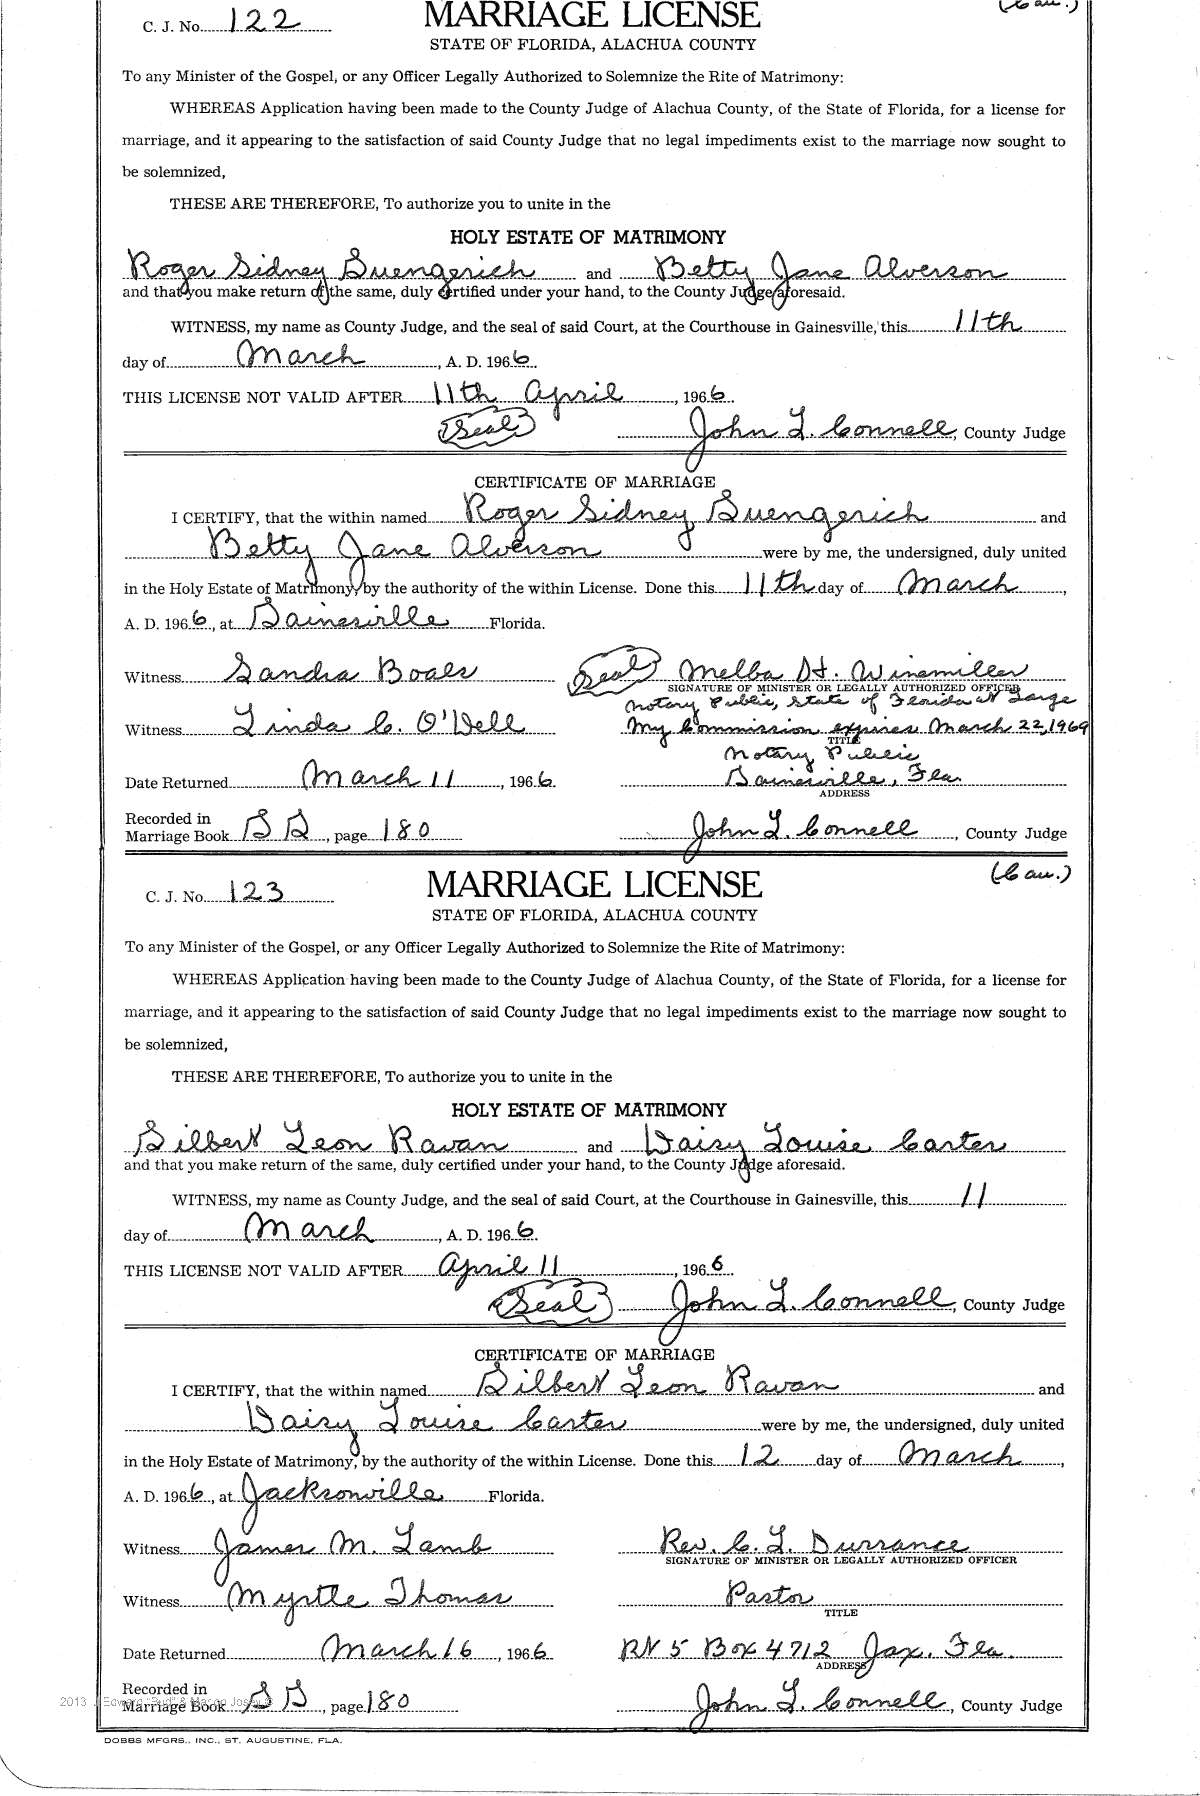 (Cau.)
C. J. No. 122 MARRIAGE LICENSE
STATE OF FLORIDA, ALACHUA COUNTY
To any Minister of the Gospel, or any Officer Legally Authorized to Solemnize the Rite of Matrimony:
WHEREAS Application having been made to the County Judge of Alachua County, of the State of Florida, for a license for
marriage, and it appearing to the satisfaction of said County Judge that no legal impediments exist to the marriage now sought to
be solemnized,
THESE ARE THEREFORE, To authorize you to unite in the
HOLY ESTATE OF MATRIMONY
Roger Sidney Guengerich and Betty Jane Alverson
and that you make return of the same, duly certified under your hand, to the County Judge aforesaid.
WITNESS, my name as County Judge, and the seal of said Court, at the Courthouse in Gainesville, this 11th
day of March, A. D. 1966.
THIS LICENSE NOT VALID AFTER 11th April, 1966.
(Seal) John L. Connell, County Judge
CERTIFICATE OF MARRIAGE
I CERTIFY, that the within named Roger Sidney Guengerich and
Betty Jane Alverson were by me, the undersigned, duly united
in the Holy Estate of Matrimony, by the authority of the within License. Done this 11th day of March,
A. D. 1966, at Gainesville Florida.
Witness Sandra Boals (Seal) Melba H. Winemiller
SIGNATURE OF MINISTER OR LEGALLY AUTHORIZED OFFICER
Notary Public, State of Florida at Large
Witness Linda C. O'Dell My Commission expires March 22, 1969
TITLE
Notary Public
Date Returned March 11, 1966. Gainesville, Fla.
ADDRESS
Recorded in
Marriage Book SS, page 180 John L. Connell, County Judge
(Cau.)
C. J. No. 123 MARRIAGE LICENSE
STATE OF FLORIDA, ALACHUA COUNTY
To any Minister of the Gospel, or any Officer Legally Authorized to Solemnize the Rite of Matrimony:
WHEREAS Application having been made to the County Judge of Alachua County, of the State of Florida, for a license for
marriage, and it appearing to the satisfaction of said County Judge that no legal impediments exist to the marriage now sought to
be solemnized,
THESE ARE THEREFORE, To authorize you to unite in the
HOLY ESTATE OF MATRIMONY
Gilbert Leon Ravan and Daisy Louise Carter
and that you make return of the same, duly certified under your hand, to the County Judge aforesaid.
WITNESS, my name as County Judge, and the seal of said Court, at the Courthouse in Gainesville, this 11
day of March, A. D. 1966.
THIS LICENSE NOT VALID AFTER April 11, 1966.
(Seal) John L. Connell, County Judge
CERTIFICATE OF MARRIAGE
I CERTIFY, that the within named Gilbert Leon Ravan and
Daisy Louise Carter were by me, the undersigned, duly united
in the Holy Estate of Matrimony, by the authority of the within License. Done this 12 day of March,
A. D. 1966, at Jacksonville Florida.
Witness James M. Lamb Rev. C. L. Durrance
SIGNATURE OF MINISTER OR LEGALLY AUTHORIZED OFFICER
Witness Myrtle Thomas Pastor
TITLE
Date Returned March 16, 1966. Rt 5 Box 4712 Jax. Fla.
ADDRESS
Recorded in
2013 J Edward "Bud" & Macon Josey ©
Marriage Book SS, page 180 John L. Connell, County Judge
DOBBS MFGRS., INC., ST. AUGUSTINE, FLA.